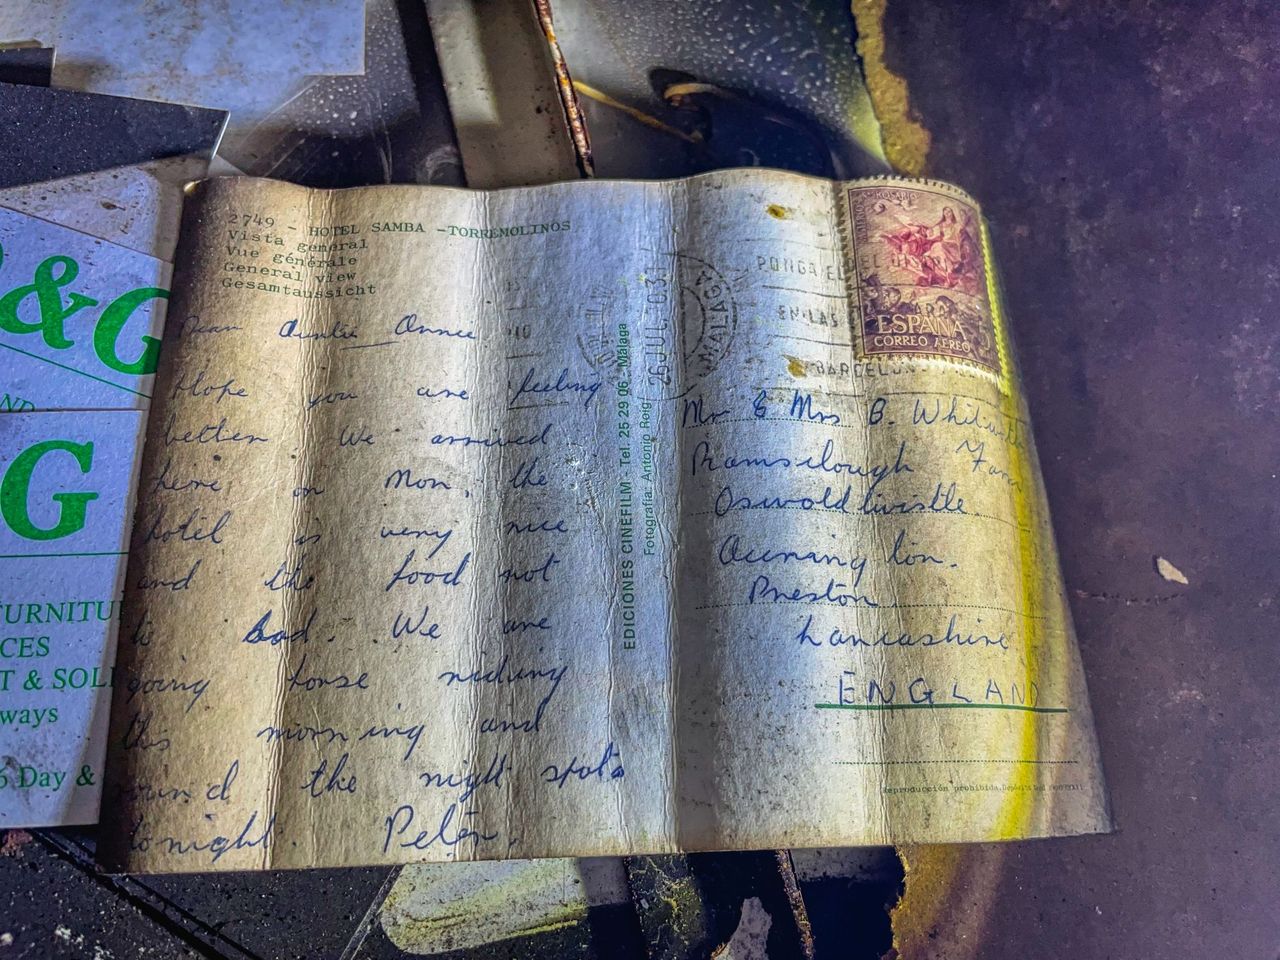 2749 - HOTEL SAMBA -TORREMOLINOS
Vista general
Vue générale
General view
Gesamtaussicht
Dear Auntie Annie
Hope you are feeling
better We arrived
here on Mon. the
hotel is very nice
and the food not
to bad. We are
going horse riding
this morning and
round the night spots
tonight. Peter.
EDICIONES CINEFILM Tel. 25 29 06 Málaga
Fotografía: Antonio Roig
26 JUL
MALAGA
PONGA EL
EN LAS
BARCELON
ESPAÑA
CORREO AEREO
Mr & Mrs B.
Ramsclough Farm
Oswoldtwistle.
Accrington.
Preston
Lancashire
ENGLAND
Reproducción prohibida.
&G
G
FURNITU
CES
T & SOL
ways
Day &